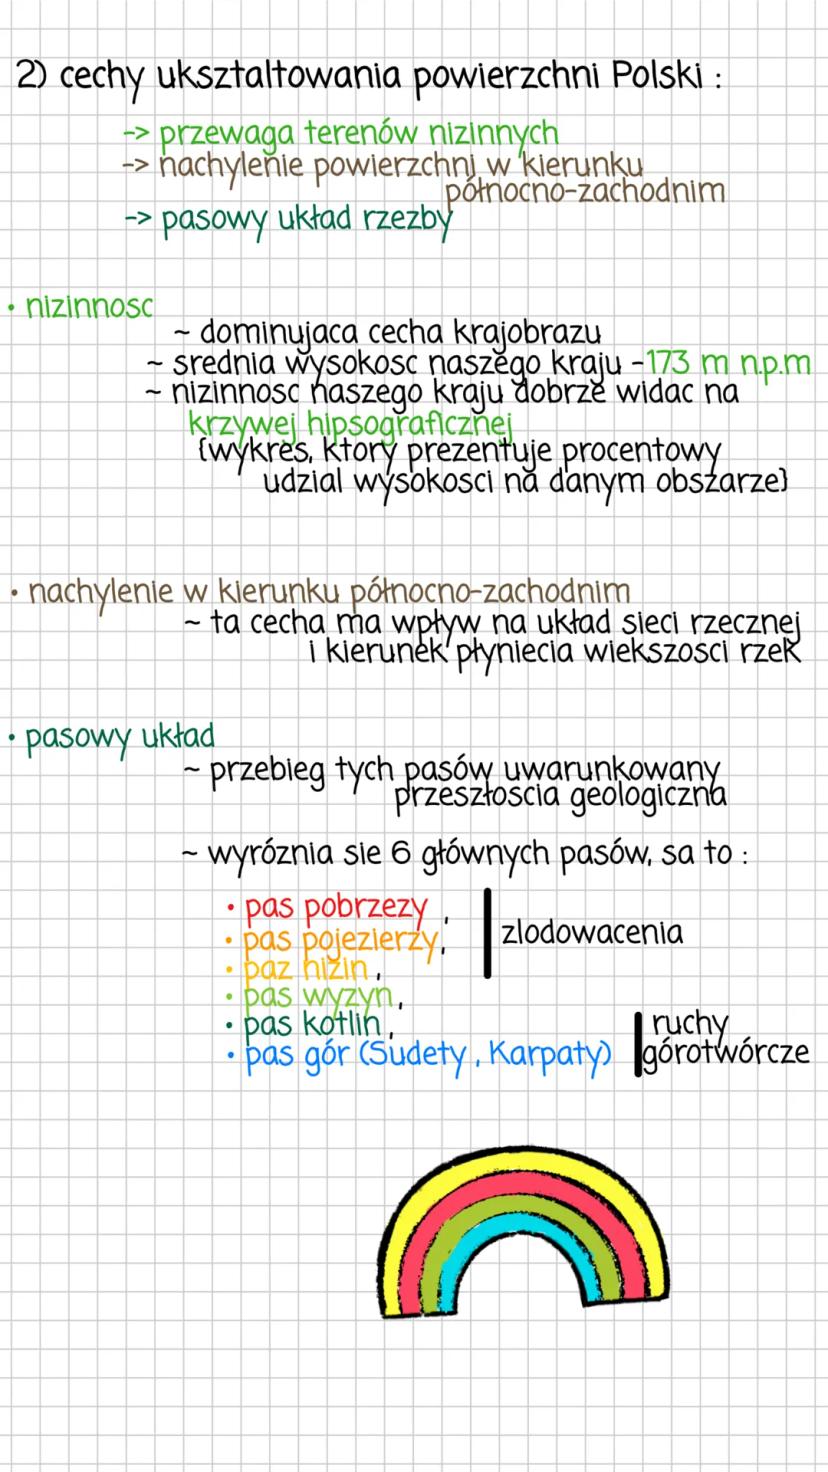 2) cechy uksztaltowania powierzchni Polski :
-> przewaga terenów nizinnych
-> nachylenie powierzchni w kierunku
północno-zachodnim
-> pasowy układ rzezby
• nizinnosc
~ dominujaca cecha krajobrazu
~ srednia wysokosc naszego kraju -173 m n.p.m
~ nizinnosc naszego kraju dobrze widac na
krzywej hipsograficznej
{wykres, ktory prezentuje procentowy
udzial wysokosci na danym obszarze}
• nachylenie w kierunku północno-zachodnim
~ ta cecha ma wpływ na układ sieci rzecznej
i kierunek płyniecia wiekszosci rzek
• pasowy układ
~ przebieg tych pasów uwarunkowany
przeszłoscia geologiczna
~ wyróznia sie 6 głównych pasów, sa to :
• pas pobrzezy ,
• pas pojezierzy,
zlodowacenia
• paz nizin ,
• pas wyzyn ,
• pas kotlin ,
ruchy
• pas gór (Sudety , Karpaty)
górotwórcze